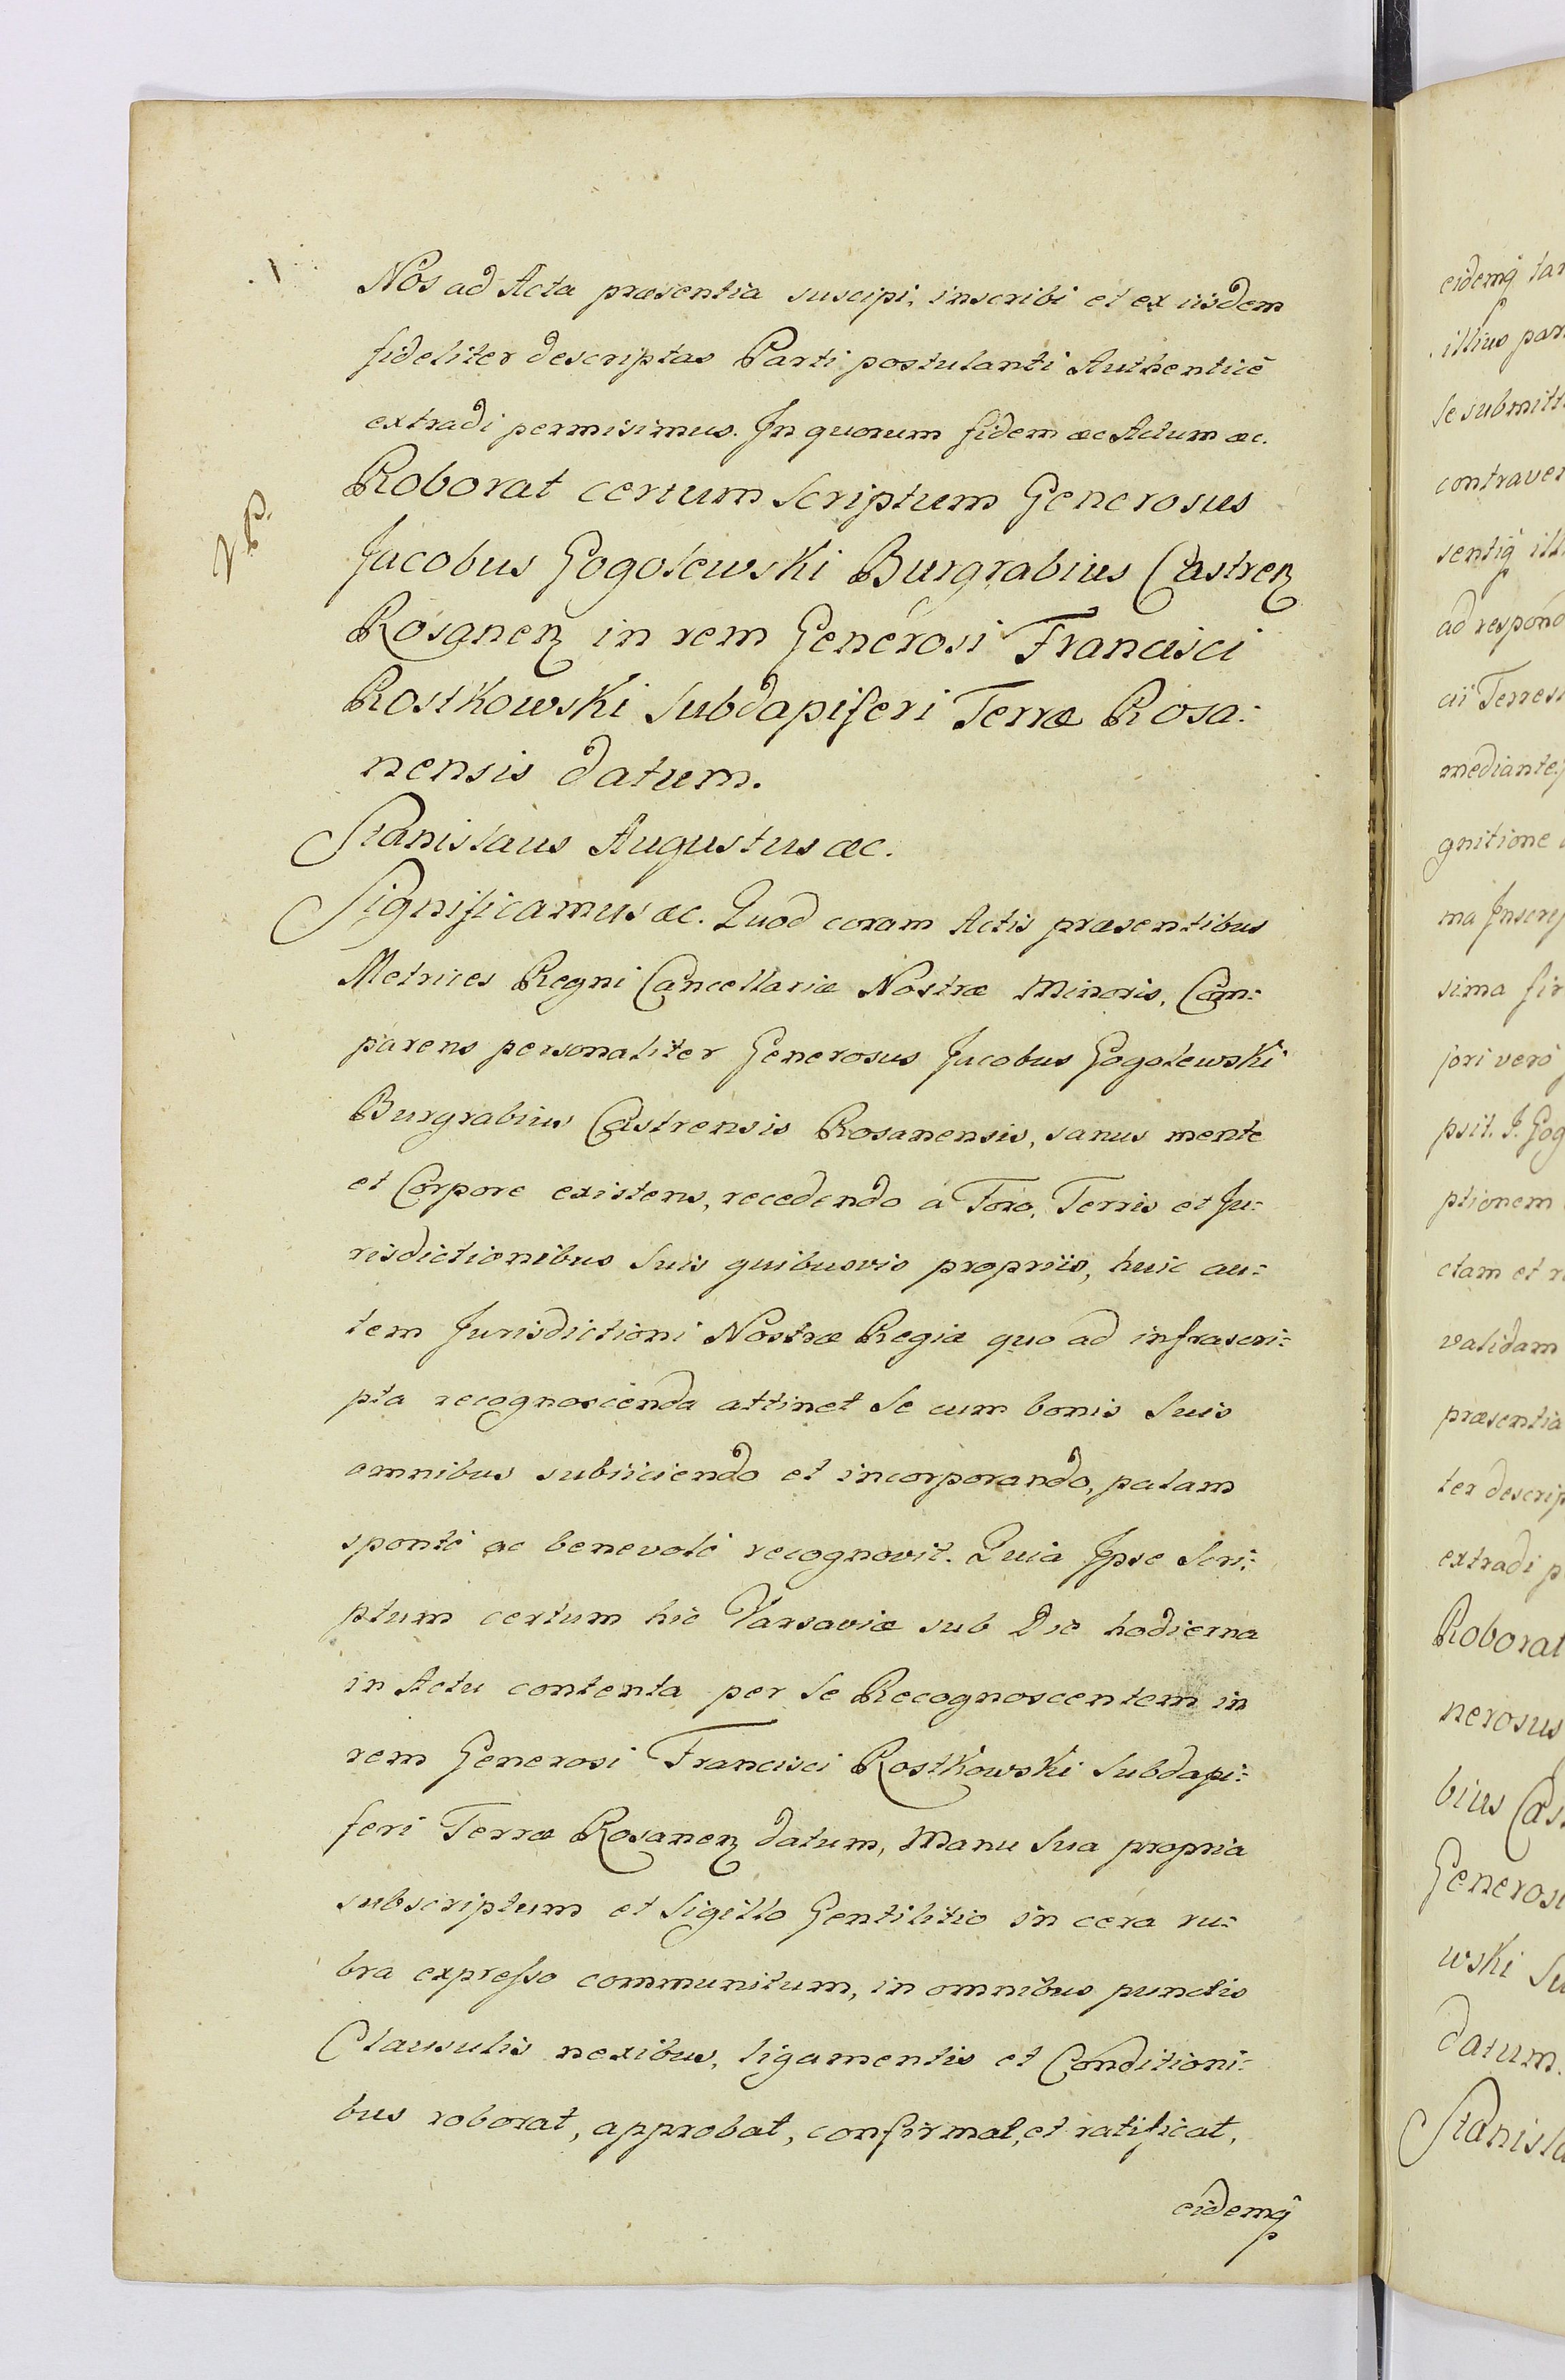 Nos ad Acta præsentia suscipi, inscribi et ex iisdem
fideliter descriptas Parti postulanti Authenticè
extradi permisimus. In quorum fidem &c Actum &c.
Roborat certum Scriptum Generosus
Jacobus Gogolewski Burgrabius Castren
Rosanen in rem Generosi Francisci
Rostkowski Subdapiferi Terræ Rosa:
nensis datum.
Stanislaus Augustus &c.
Significamus &c. Quod coram Actis præsentibus
Metrices Regni Cancellariæ Nostræ Minoris, Com:
parens personaliter Generosus Jacobus Gogolewski
Burgrabius Castrensis Rosanensis, sanus mente
et Corpore existens, recedendo à Foro, Terris et Ju:
risdictionibus Suis quibusvis propriis, huic au:
tem Jurisdictioni Nostræ Regiæ quo ad infrascri:
pta recognoscenda attinet Se cum bonis Suis
omnibus subiiciendo et incorporando, palam
spontè ac benevolè recognovit. Quia Ipse Scri:
ptum certum hic Varsaviæ sub Die hodierna
in Actu contenta per Se Recognoscentem in
rem Generosi Francisci Rostkowski Subdapi:
feri Terræ Rosanen datum, Manu Sua propria
subscriptum et Sigillo Gentilitio in cera ru:
bra expresso communitum, in omnibus punctis
Clausulis nexibus, ligamentis et Conditioni:
bus roborat, approbat, confirmat, et ratificat,
eidemq
eidemq tan
illius par
Se submitt
contraven
sentiq ill
ad respond
cii Terrest
mediante
gnitione
ma Inscrip
sima fir
jori verò
psit. J. Gog
ptionem
ctam et r
validam
præsentia
ter descrip
extradi p
Roborat
nerosus
bius Cas
Generosi
wski Su
datum.
Stanisla